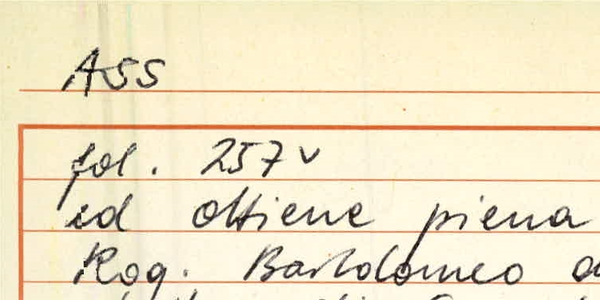 ASS
fol. 257 v
ed ottiene piena
Rog. Bartolomeo